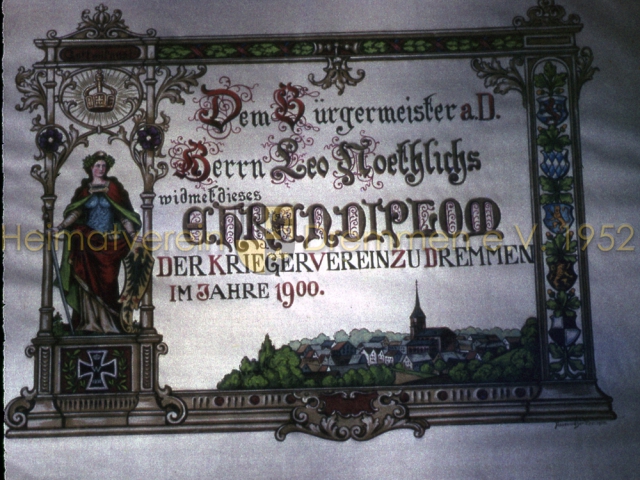 Dem Bürgermeister a.D.
Herrn Leo Noethlichs
widmet dieses
EHRENDIPLOM
DER KRIEGERVEREIN ZU DREMMEN
IM JAHRE 1900.
Heimatverein Dremmen e.V. 1952